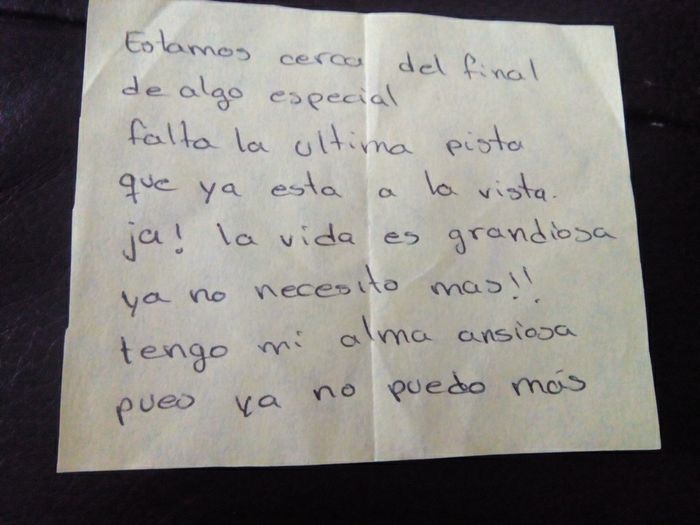 Estamos cerca del final
de algo especial
falta la ultima pista
que ya esta a la vista.
ja! la vida es grandiosa
ya no necesito mas!!
tengo mi alma ansiosa
pues ya no puedo más